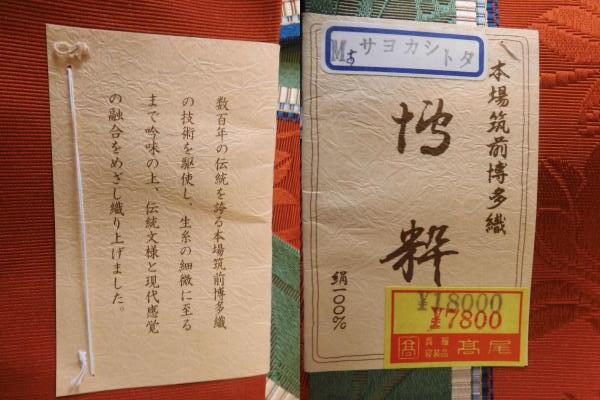 数百年の伝統を誇る本場筑前博多織
の技術を駆使し、生糸の細微に至る
まで吟味の上、伝統文様と現代感覚
の融合をめざし織り上げました。
Mす サヨカシトタ
本場筑前博多織
博粋
絹一〇〇%
¥18000
¥7800
高
髙尾